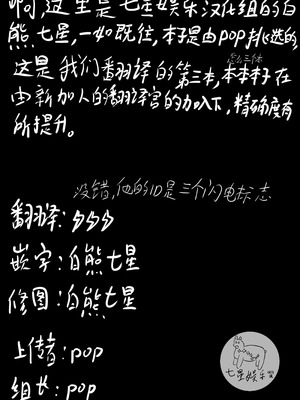 啊,这里是七星娱乐汉化组的白
熊七星,一如既往,本子是由pop挑选的
怎么三体
这是我们翻译的第三本,本本子在
由新加入的翻译官的加入下,精确度有
所提升。
没错,他的ID是三个闪电标志
翻译:ϟϟϟ
嵌字:白熊七星
修图:白熊七星
上传者:pop
组长:pop
七星娱乐